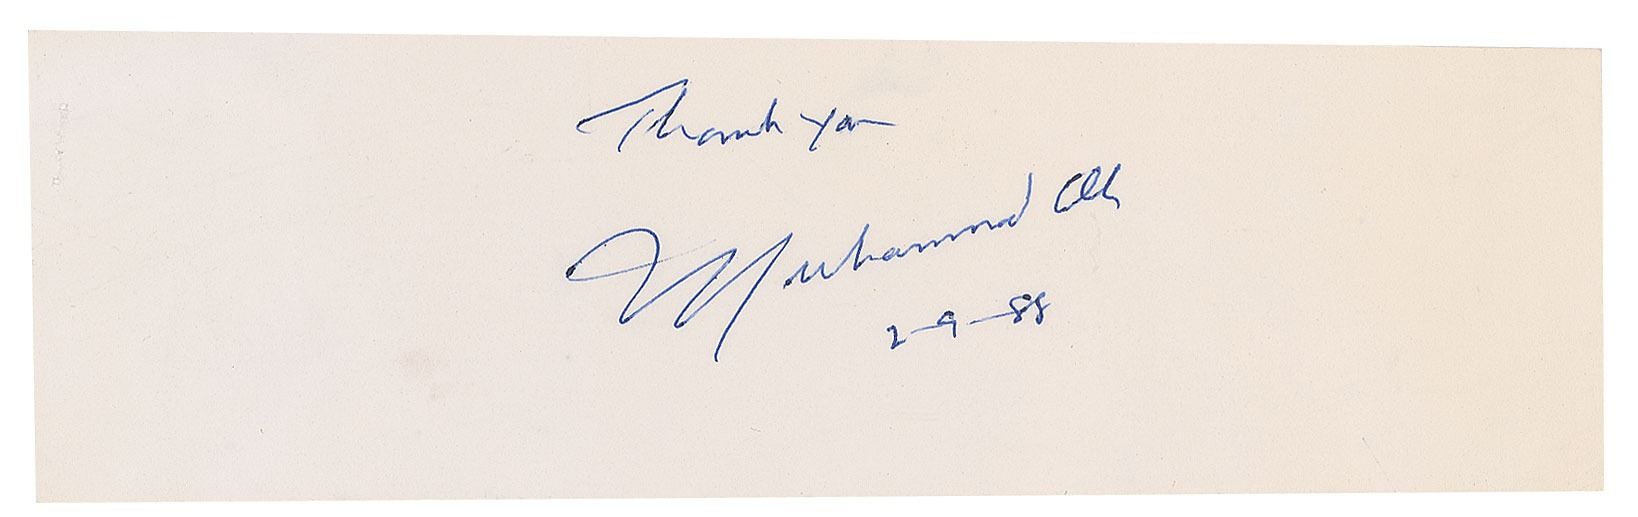 Thank You
Muhammad Ali
2-9-88